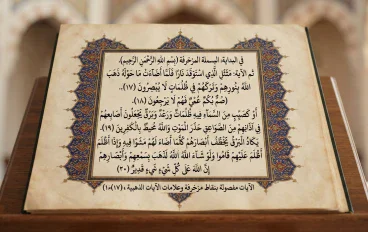 في البداية: البسملة المزخرفة (بِسْمِ اللَّهِ الرَّحْمَنِ الرَّحِيمِ).
ثم الآية: مَثَلُ الَّذِي اسْتَوْقَدَ نَارًا فَلَمَّا أَضَاءَتْ مَا حَوْلَهُ ذَهَبَ
اللَّهُ بِنُورِهِمْ وَتَرَكَهُمْ فِي ظُلُمَاتٍ لَا يُبْصِرُونَ (١٧)..
صُمٌّ بُكْمٌ عُمْيٌ فَهُمْ لَا يَرْجِعُونَ (١٨).
أَوْ كَصَيِّبٍ مِنَ السَّمَاءِ فِيهِ ظُلُمَاتٌ وَرَعْدٌ وَبَرْقٌ يَجْعَلُونَ أَصَابِعَهُمْ
فِي آذَانِهِمْ مِنَ الصَّوَاعِقِ حَذَرَ الْمَوْتِ وَاللَّهُ مُحِيطٌ بِالْكَافِرِينَ (١٩).
يَكَادُ الْبَرْقُ يَخْطَفُ أَبْصَارَهُمْ كُلَّمَا أَضَاءَ لَهُمْ مَشَوْا فِيهِ وَإِذَا أَظْلَمَ
أَظْلَمَ عَلَيْهِمْ قَامُوا وَلَوْ شَاءَ اللَّهُ لَذَهَبَ بِسَمْعِهِمْ وَأَبْصَارِهِمْ
إِنَّ اللَّهَ عَلَى كُلِّ شَيْءٍ شَيْءٍ قَدِيرٌ (٢٠)
الآيات مفصولة بنقاط مزخرفة وعلامات الآيات الذهبية